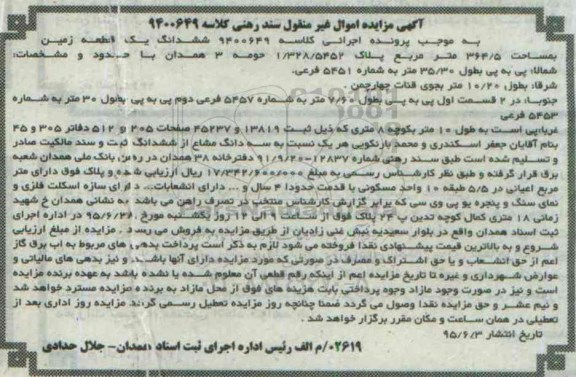 آگهی مزایده اموال غیر منقول سند رهنی کلاسه ۹۴۰۰۶۴۹
به موجب پرونده اجرائی کلاسه ۹۴۰۰۶۴۹ ششدانگ یک قطعه زمین
بمساحت ۳۶۴/۵ متر مربع پلاک ۱/۳۲۸/۵۴۵۲ حومه ۳ همدان با حدود و مشخصات:
شمالا: پی به پی بطول ۳۵/۳۰ متر به شماره ۵۴۵۱ فرعی.
شرقا: بطول ۱۰/۲۰ متر بجوی قنات چهارچمن
جنوبا: در ۲ قسمت اول پی به پی بطول ۷/۶۰ متر به شماره ۵۴۵۷ فرعی دوم پی به پی بطول ۳۰ متر به شماره
۵۴۵۳ فرعی
غربا: پی است به طول ۱۰ متر بکوچه ۸ متری که ذیل ثبت ۱۳۸۱۹ و ۴۵۲۳۷ صفحات ۲۰۵ و ۵۱۲ دفاتر ۳۰۵ و ۴۵
بنام آقایان جعفر اسکندری و محمد بازنکویی هر یک نسبت به سه دانگ مشاع از ششدانگ ثبت و سند مالکیت صادر
و تسلیم شده است طبق سند رهنی شماره ۱۲۸۳۷-۹۱/۹/۲۰ دفترخانه ۳۸ همدان در رهن بانک ملی همدان شعبه
برق قرار گرفته و طبق نظر کارشناس رسمی به مبلغ ۱۷/۳۴۲/۶۰۰/۰۰۰ ریال ارزیابی شده و پلاک فوق دارای متر
مربع اعیانی در ۵/۵ طبقه ۱۰ واحد مسکونی با قدمت حدودا ۴ سال و ... دارای انشعابات... دارای سازه اسکلت فلزی و
نمای سنگ و پنجره یو پی وی سی که برابر گزارش کارشناس منتخب در تصرف راهن می باشد به نشانی همدان خ شهید
زمانی ۱۸ متری کمال کوچه تدین پ ۲۴ پلاک فوق از ساعت ۹ الی ۱۲ روز یکشنبه مورخ ۹۵/۶/۲۸ در اداره اجرای
ثبت اسناد همدان واقع در بلوار سعیدیه نبش غنی زادیان از طریق مزایده به فروش می رسد. مزایده از مبلغ ارزیابی
شروع و به بالاترین قیمت پیشنهادی نقدا فروخته می شود لازم به ذکر است پرداخت بدهی های مربوط به اب برق گاز
اعم از حق انشعاب و یا حق اشتراک و مصرف در صورتی که مورد مزایده دارای آنها باشد و نیز بدهی های مالیاتی و
عوارض شهرداری و غیره تا تاریخ مزایده اعم از اینکه رقم قطعی آن معلوم شده یا نشده باشد به عهده برنده مزایده
است و نیز در صورت وجود مازاد وجوه پرداختی بابت هزینه های فوق از محل مازاد به برنده مزایده مسترد خواهد شد
و نیم عشر و حق مزایده نقدا وصول می گردد ضمنا چنانچه روز مزایده تعطیل رسمی گردد مزایده روز اداری بعد از
تعطیلی در همان ساعت و مکان مقرر برگزار خواهد شد.
تاریخ انتشار ۹۵/۶/۳
۰۲۶۱۹/م الف رئیس اداره اجرای ثبت اسناد همدان- جلال حدادی